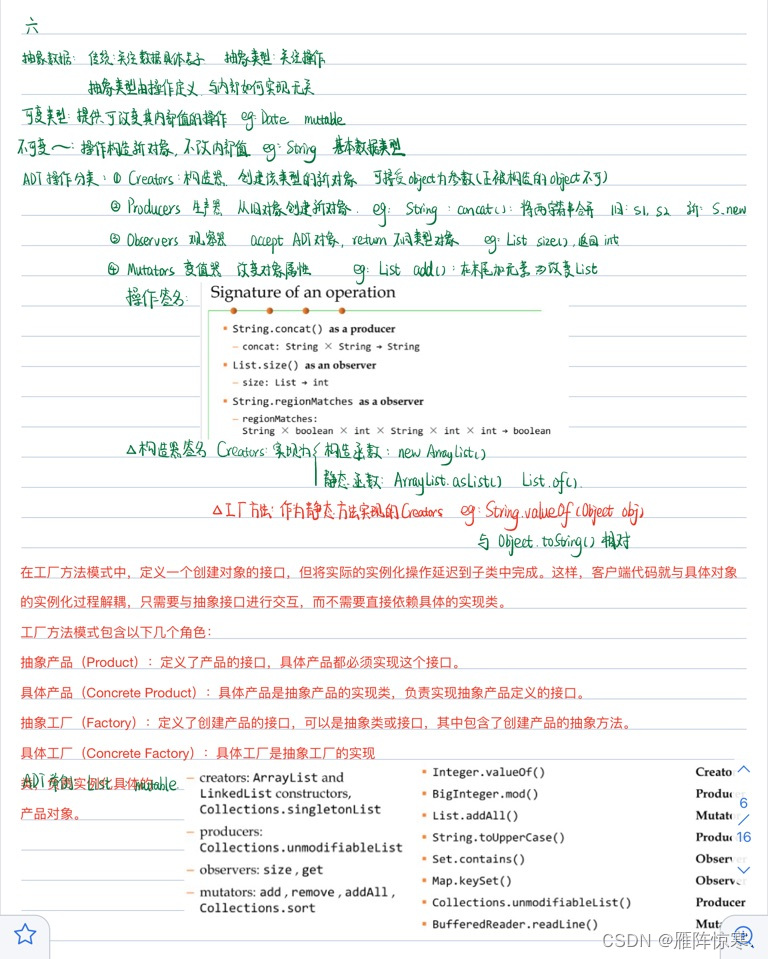 六
抽象数据: 传统:关注数据具体表示 抽象类型:关注操作
抽象类型由操作定义,与内部如何实现无关
可变类型: 提供可改变其内部值的操作 eg: Date mutable
不可变〜: 操作构造新对象, 不改内部值 eg: String 基本数据类型
ADT操作分类: ① Creators: 构造器 创建该类型的新对象 可接受object为参数(正被构造的object不可)
② Producers 生产器 从旧对象创建新对象. eg: String: concat(): 将两字符串合并 旧: S1, S2 新: S_new
③ Observers 观察器 accept ADT对象, return 不同类型对象 eg: List size(), 返回int
④ Mutators 变值器 改变对象属性 eg: List add(): 在末尾加元素 为改变List
操作签名:
Signature of an operation
String.concat() as a producer
– concat: String × String → String
List.size() as an observer
– size: List → int
String.regionMatches as a observer
– regionMatches:
String × boolean × int × String × int × int → boolean
△构造器签名 Creators: 实现为{ 构造函数: new ArrayList()
静态函数: ArrayList.asList() List.of().
△工厂方法: 作为静态方法实现的Creators eg: String.valueOf(Object obj)
与 Object.toString() 相对
在工厂方法模式中,定义一个创建对象的接口,但将实际的实例化操作延迟到子类中完成。这样,客户端代码就与具体对象
的实例化过程解耦,只需要与抽象接口进行交互,而不需要直接依赖具体的实现类。
工厂方法模式包含以下几个角色:
抽象产品(Product):定义了产品的接口,具体产品都必须实现这个接口。
具体产品(Concrete Product):具体产品是抽象产品的实现类,负责实现抽象产品定义的接口。
抽象工厂(Factory):定义了创建产品的接口,可以是抽象类或接口,其中包含了创建产品的抽象方法。
具体工厂(Concrete Factory):具体工厂是抽象工厂的实现
实例化具体的
产品对象。
ADT 举例: List mutable
– creators: ArrayList and
LinkedList constructors,
Collections.singletonList
– producers:
Collections.unmodifiableList
– observers: size , get
– mutators: add , remove , addAll ,
Collections.sort
Integer.valueOf() Creato
BigInteger.mod() Produ
List.addAll() Mutat
String.toUpperCase() Produ
Set.contains() Obser
Map.keySet() Observ
Collections.unmodifiableList() Producer
BufferedReader.readLine() Mut
6
/
16
CSDN @雁阵惊寒